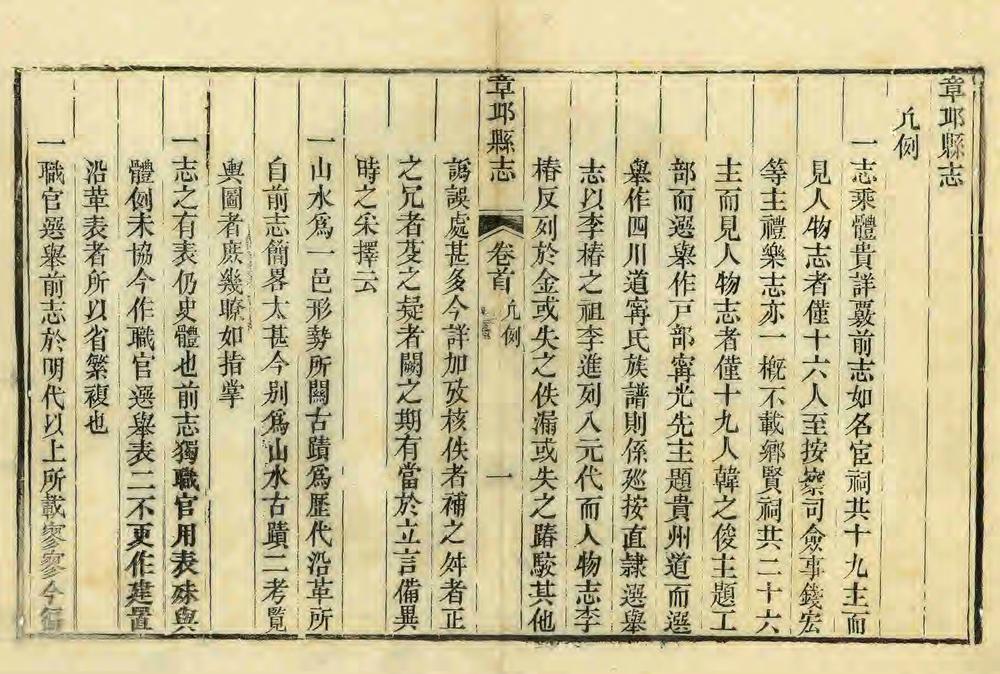 章邱縣志
凡例
一志乘體貴詳覈前志如名宦祠共十九主而
見人物志者僅十六人至按察司僉事錢宏
等主禮樂志亦一槪不載鄉賢祠共二十六
主而見人物志者僅十九人韓之俊主題工
部而選舉作戸部甯光先主題貴州道而選
舉作四川道甯氏族譜則係廵按直隷選舉
志以李椿之祖李進列入元代而人物志李
椿反列於金或失之佚漏或失之踳駁其他
章邱縣志
卷首
凡例
一
譌誤處甚多今詳加攷核佚者補之舛者正
之冗者芟之疑者闕之期有當於立言備異
時之采擇云
一山水爲一邑形勢所關古蹟爲歷代沿革所
自前志簡畧太甚今别爲山水古蹟二考覽
輿圖者庶幾瞭如指掌
一志之有表仍史體也前志獨職官用表殊與
體例未協今作職官選舉表二不更作建置
沿革表者所以省繁複也
一職官選舉前志於明代以上所載寥寥今